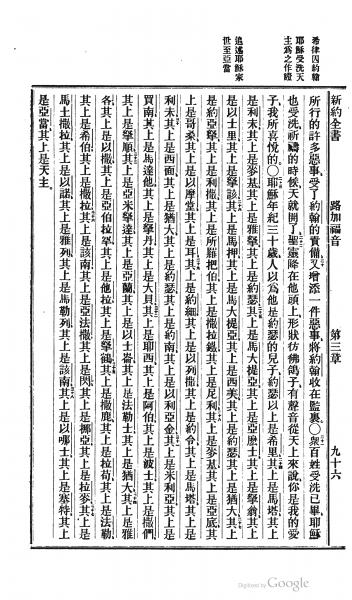 新約全書 路加福音 第三章 九十六
希律因約翰
耶穌受洗天
主爲之作證
追述耶穌家
世至亞當
所行的許多惡事、受了約翰的責備、又增添一件惡事、將約翰收在監裏、○衆百姓受洗已畢、耶穌
也受洗、祈禱的時候、天就開了、聖靈降在他頭上、形狀彷彿鴿子、有聲音從天上來說、你是我的愛
子、我所喜悅的、○耶穌年紀三十歲、人以爲他是約瑟的兒子、約瑟以上是希里、其上是馬塔、其上
是利未、其上是麥基、其上是雅拏、其上是約瑟、其上是馬大提亞、其上是亞麽士、其上是拏翁、其上
是以士里、其上是拏該、其上是馬押、其上是馬大提亞、其上是西美、其上是約瑟、其上是猶大、其上
是約亞拏、其上是利撒、其上是所羅把伯、其上是撒拉鐵、其上是尼利、其上是麥基、其上是亞底、其
上是哥桑、其上是以摩堂、其上是耳、其上是約細、其上是以列撒、其上是約令、其上是馬塔、其上是
利未、其上是西面、其上是猶大、其上是約瑟、其上是約南、其上是以利亞金、其上是米利亞、其上是
買南、其上是馬達他、其上是拏丹、其上是大貝、其上是耶西、其上是阿伯、其上是波士、其上是撒們、
其上是拏順、其上是亞米拏達、其上是亞蘭、其上是以士崙、其上是法勒士、其上是猶大、其上是雅
各、其上是以撒、其上是亞伯拉罕、其上是他拉、其上是拏鶴、其上是撒鹿、其上是拉苟、其上是法勒、
其上是希伯、其上是撒拉、其上是該南、其上是亞法撒、其上是閃、其上是挪亞、其上是拉麥、其上是
馬土撒拉、其上是以諾、其上是雅列、其上是馬勒列、其上是該南、其上是以哪士、其上是塞特、其上
是亞當、其上是天主、
Digitized by Google